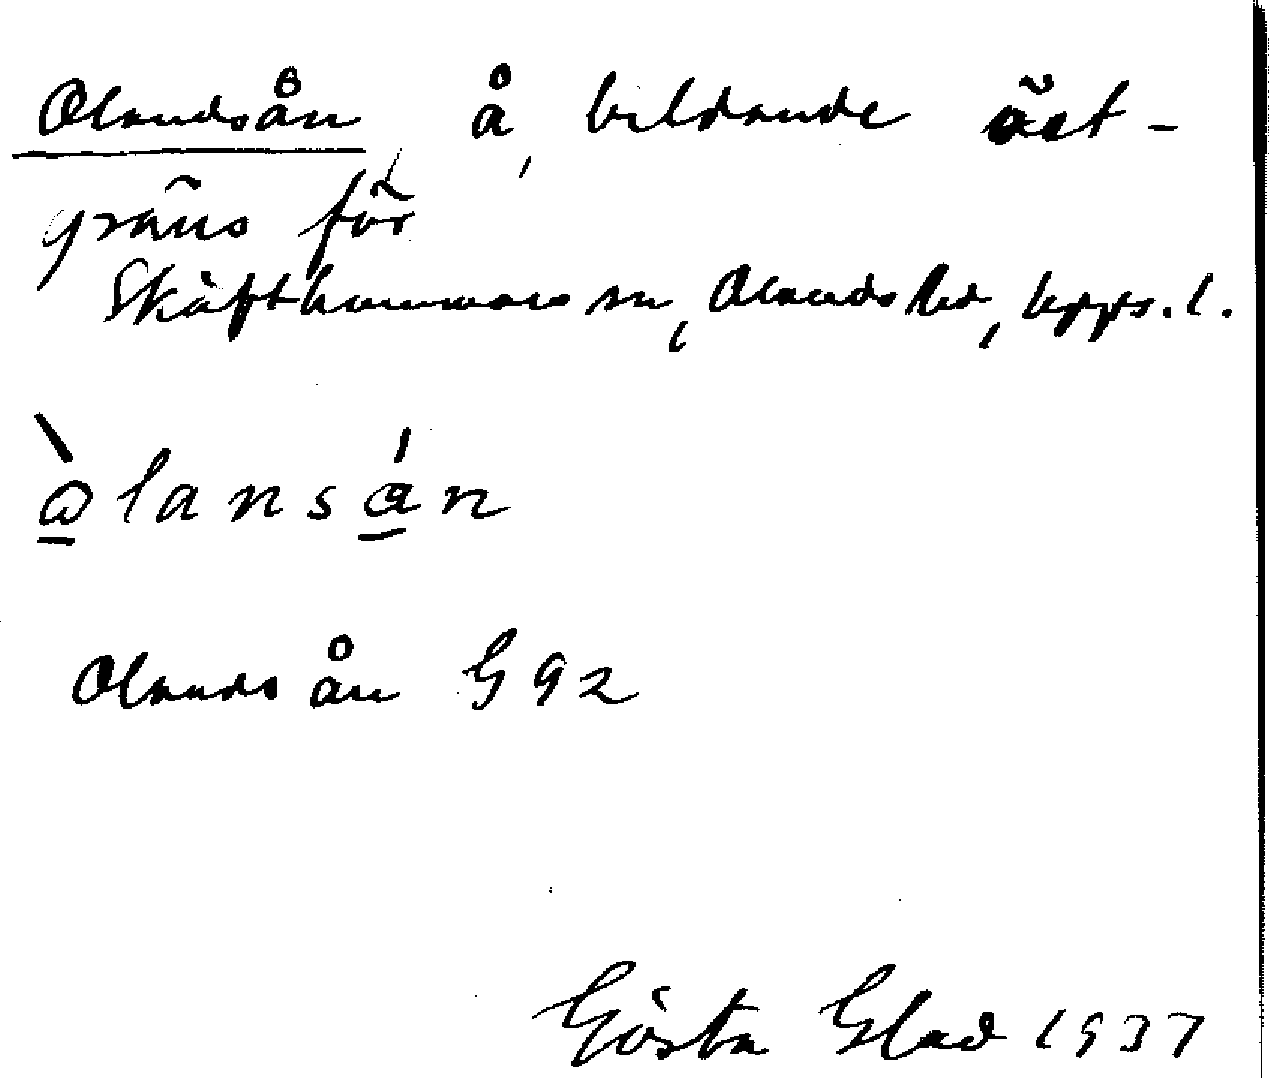 Olandsån å, bildande öst-
gräns för
Skäfthammars sn, Olands hd, Upps. l.
àlansán
Olandsån G 92
Gösta Glad 1937